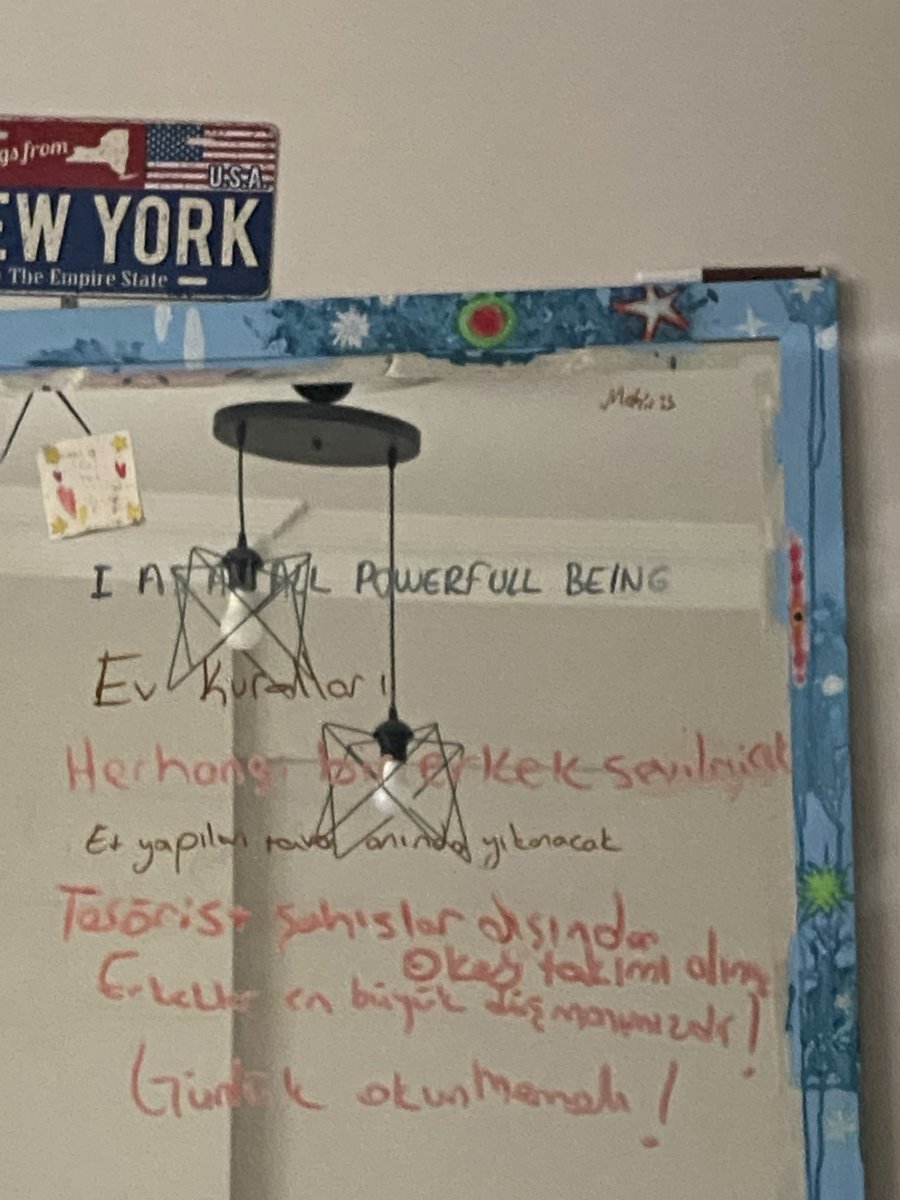 gs from
U.S.A.
EW YORK
The Empire State
I AM AN ALL POWERFULL BEING
Ev Kuralları
Herhangi bir erkek sevilmicek
Et yapılan tava anında yıkanacak
şahıslar dışından
Okey takımı alın
Erkekler en büyük düşmanımızdır!
Günlük okunmamalı!